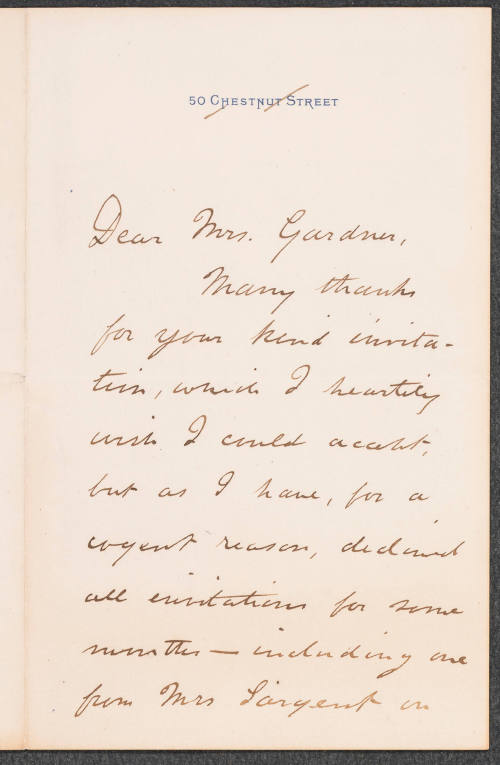 50 Chestnut Street
Dear Mrs. Gardner,
Many thanks
for your kind invita-
tion, which I heartily
wish I could accept,
but as I have, for a
cogent reason, declined
all invitations for some
months — including one
from Mrs Sargent on